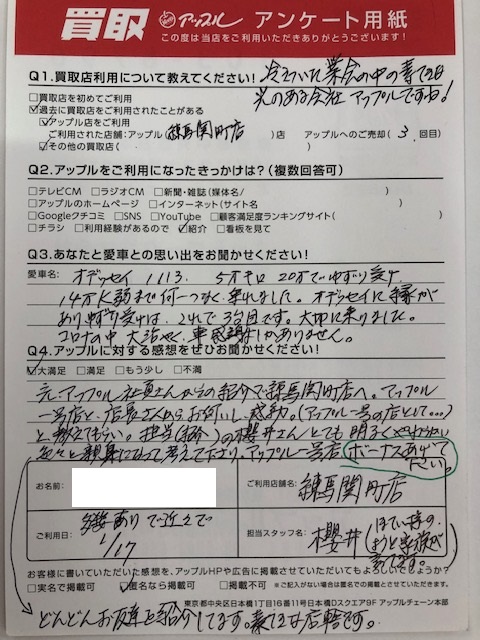 買取 アップル アンケート用紙
この度は当店をご利用いただきありがとうございます!
Q1.買取店利用について教えてください!
業会の中の素
光のある会社 アップルですね!
□買取店を初めてご利用
☑過去に買取店をご利用されたことがある
☑アップル店をご利用
ご利用された店舗:アップル(練馬関町店)店 アップルへのご売却(3回目)
☑その他の買取店( )
Q2.アップルをご利用になったきっかけは?(複数回答可)
□テレビCM □ラジオCM □新聞・雑誌(媒体名/ )
□アップルのホームページ □インターネット(サイト名 )
□Googleクチコミ □SNS □YouTube □顧客満足度ランキングサイト( )
□チラシ □利用経験があるので ☑紹介 □看板を見て
Q3.あなたと愛車との思い出をお聞かせください!
愛車名: オデッセイ 1113. 5万キロ 20万でゆずり受け
14万K弱まで何一つなく乗れました。オデッセイに縁が
あり、ゆずり受けは、これで3台目です。大切に乗りました。
コロナの中 大活やく、車感謝しかありません。
Q4.アップルに対する感想をぜひお聞かせください!
☑大満足 □満足 □もう少し □不満
元、アップル社員さんからの紹介で練馬関町店へ。アップル
一号店と、店長さんからお伺いし感動。(アップル一号の店として…)
と教えてもらい。担当()の櫻井さんとても明るくやわらかい
色々と親身になって考えて下さり、アップル一号店 ボーナスあげて
下さい。
お名前:
ご利用店舗名: 練馬関町店
ご利用日: 縁ありで近くで
1/17
担当スタッフ名: 櫻井
お客様に書いていただいた感想を、アップルHPや広告に掲載させていただいてもよろしいでしょうか?
□実名で掲載可 ☑匿名なら掲載可 □掲載不可 ※ご記入がない場合は匿名での掲載とさせていただきます。
東京都中央区日本橋1丁目16番11号日本橋Dスクエア9F アップルチェーン本部
どんどんお友達を紹介してます。素てきな店舗です。